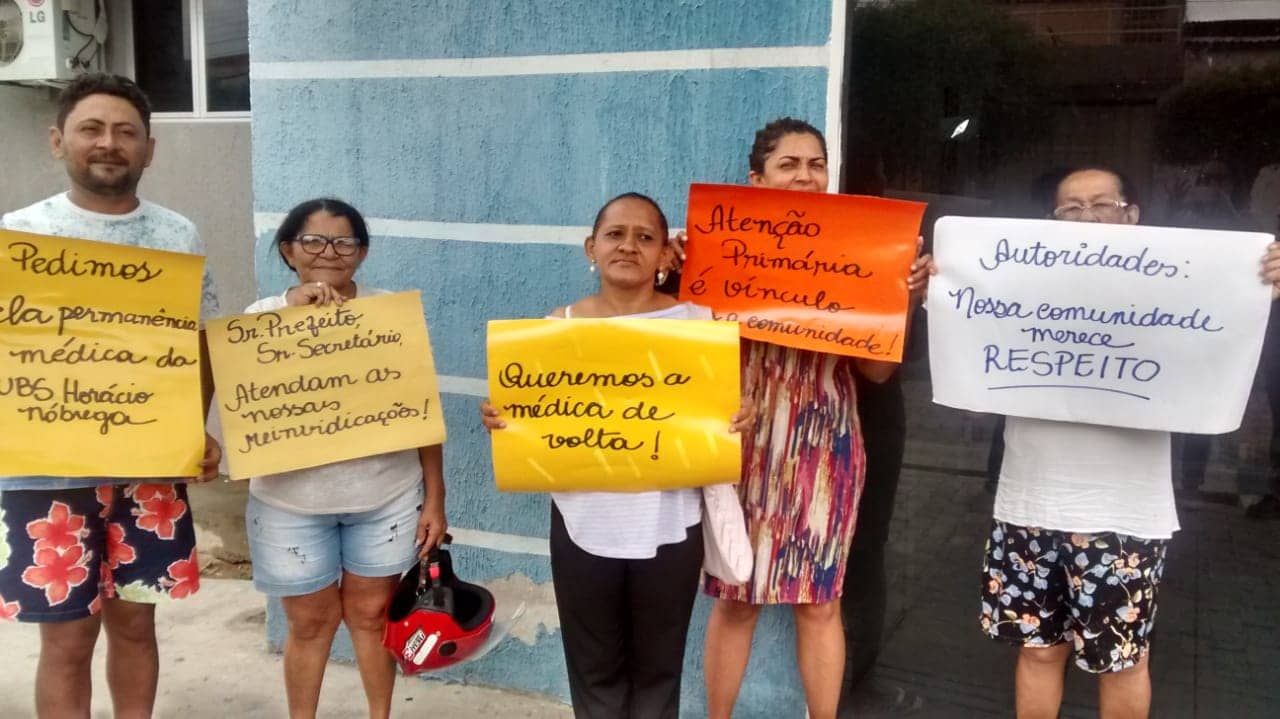 LG
Pedimos
pela permanência
médica da
UBS Horácio
nóbrega
Sr. Prefeito,
Sr. Secretário,
Atendam as
nossas
reinvidicações!
Queremos a
médica de
volta!
Atenção
Primária
é vínculo
a comunidade!
Autoridades:
Nossa comunidade
merece
RESPEITO